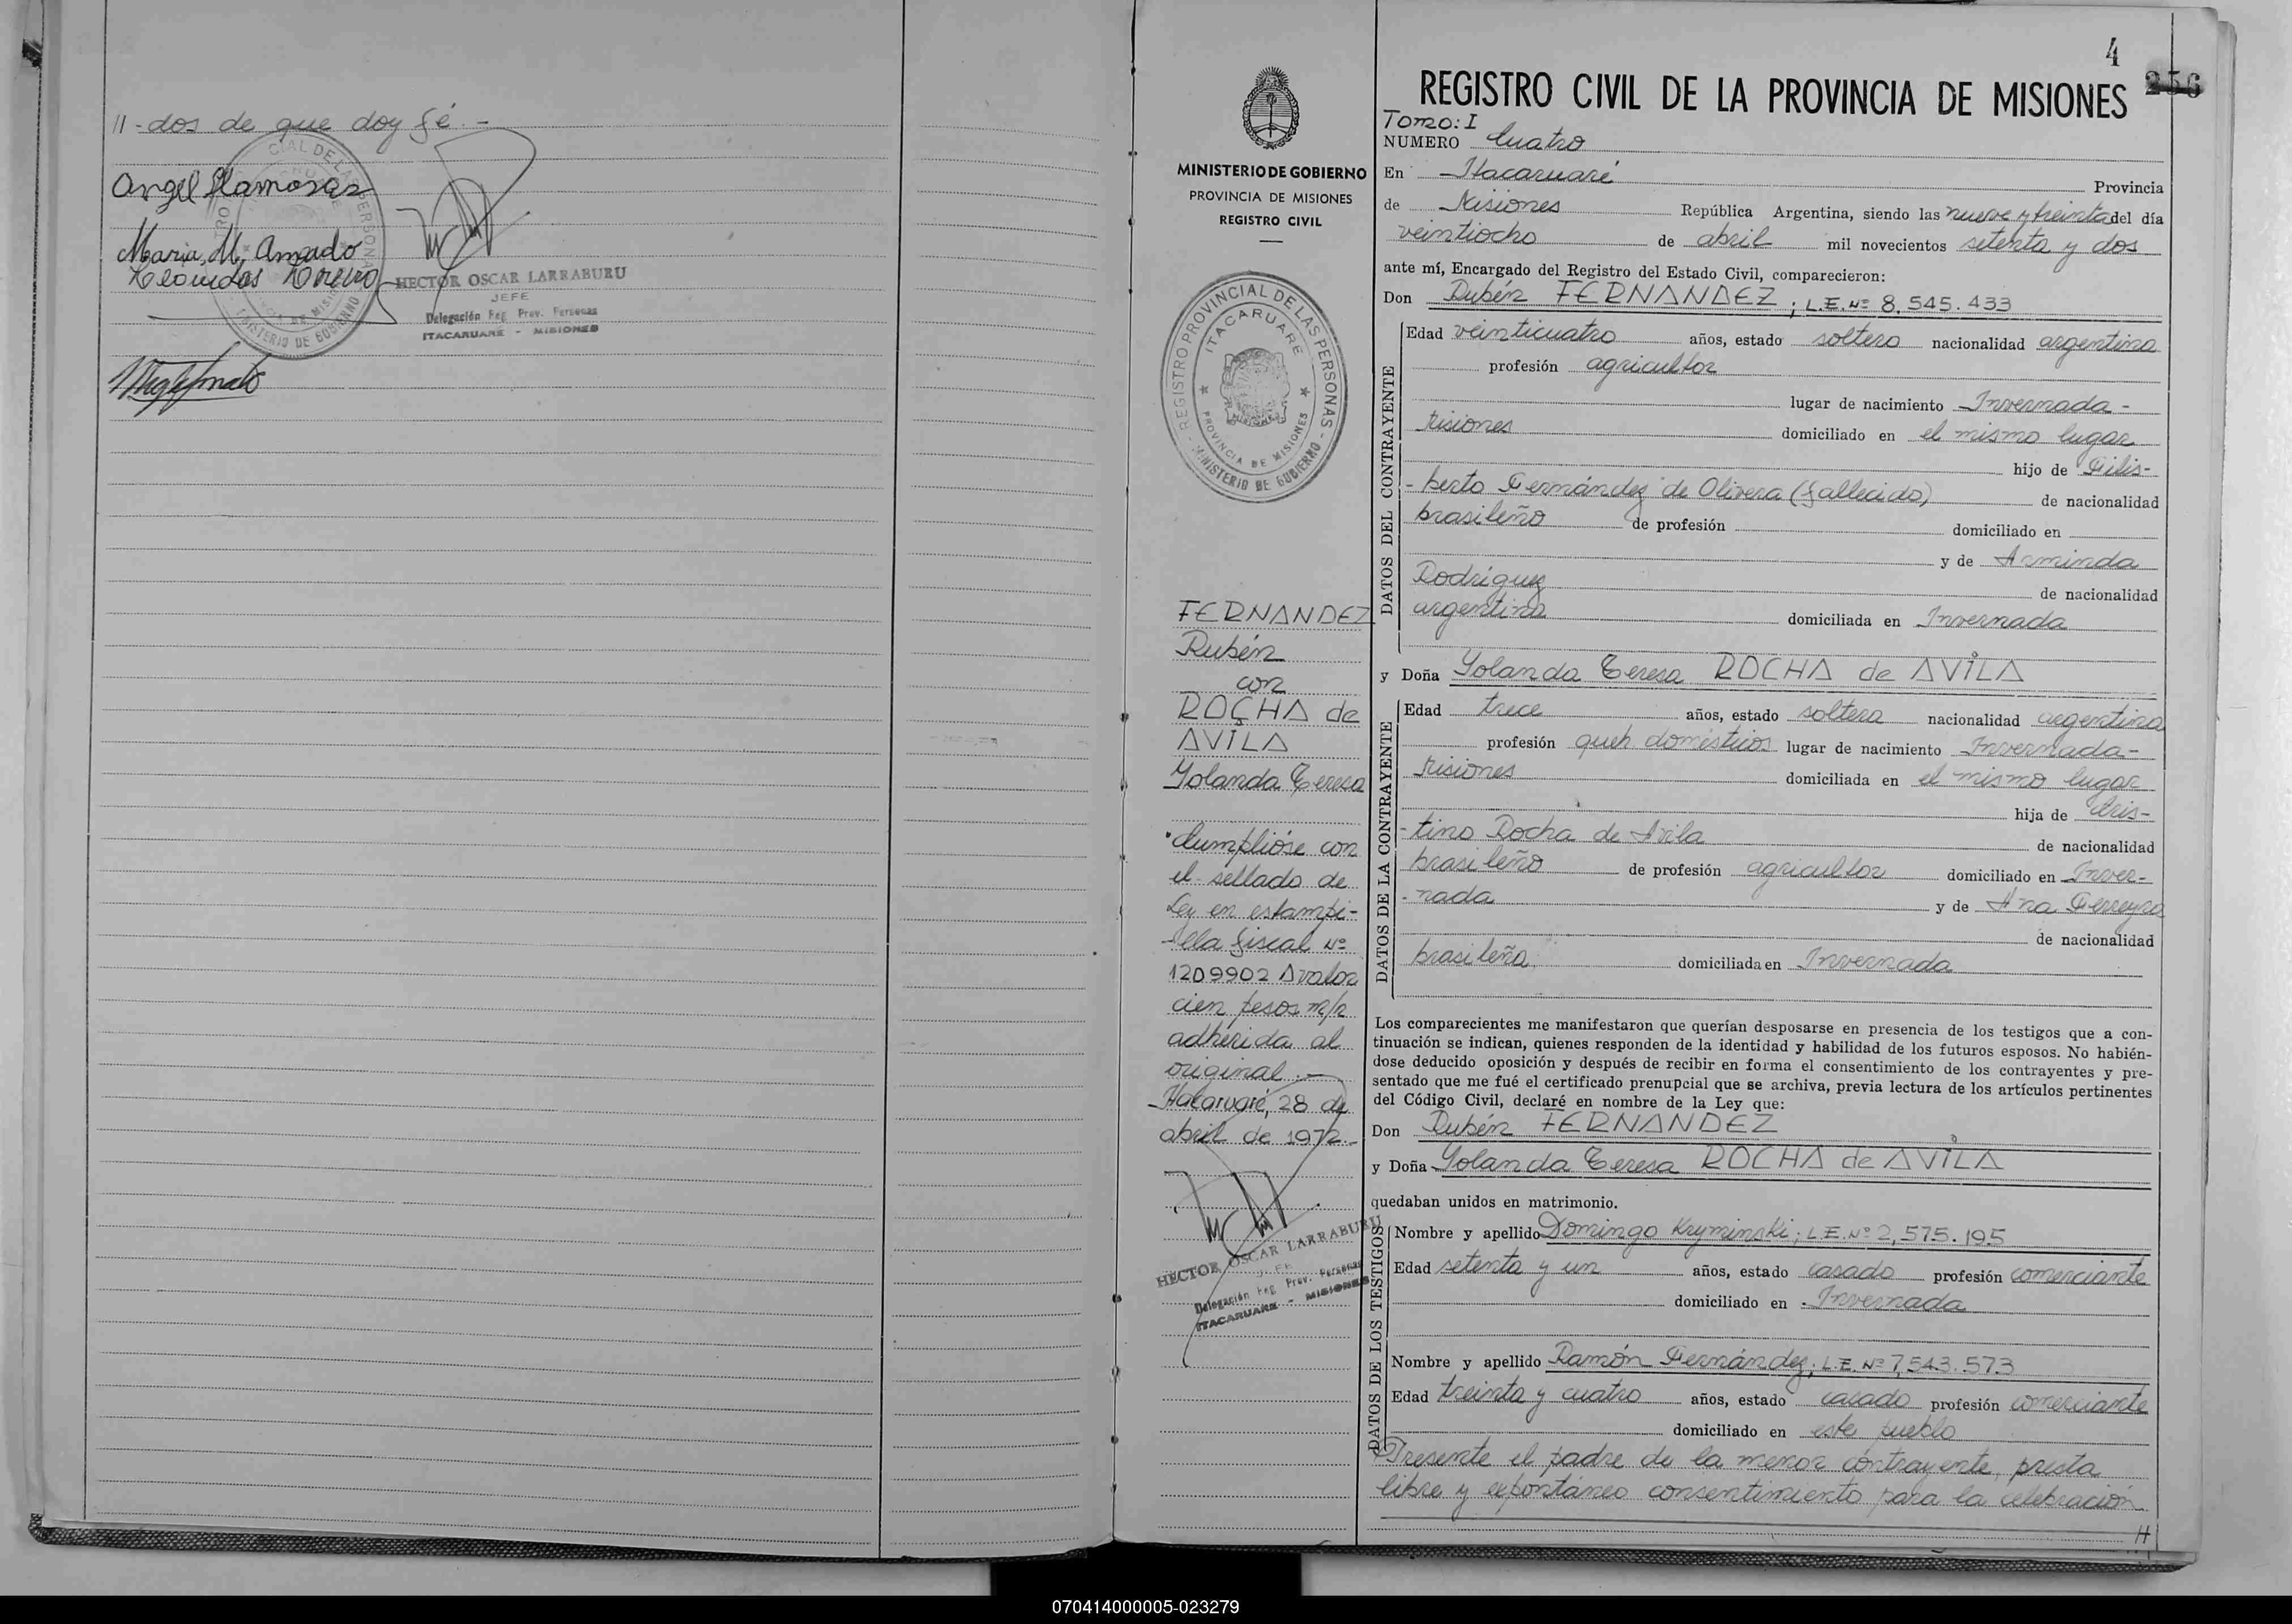 //-dos de que doy fé.-
Angel Llamosas
Maria M. Amado
HECTOR OSCAR LARRABURU
JEFE
Delegación Reg. Prov. Personas
ITACARUARE - MISIONES
4
256
REGISTRO CIVIL DE LA PROVINCIA DE MISIONES
Tomo: I
NUMERO Cuatro
MINISTERIO DE GOBIERNO
PROVINCIA DE MISIONES
REGISTRO CIVIL
REGISTRO PROVINCIAL DE LAS PERSONAS
ITACARUARE
PROVINCIA DE MISIONES
MINISTERIO DE GOBIERNO
FERNANDEZ
Rubén
con
ROCHA de
AVILA
Yolanda Teresa
Cumplióse con
el sellado de
Ley en estampi-
lla fiscal Nº
1209902 A valor
cien pesos m/n
adherida al
original.-
Itacaruaré, 28 de
abril de 1972.-
HECTOR OSCAR LARRABURU
JEFE
Delegación Reg. Prov. Personas
ITACARUARE - MISIONES
En Itacaruaré Provincia
de Misiones República Argentina, siendo las nueve y treinta del día
veintiocho de abril mil novecientos setenta y dos
ante mí, Encargado del Registro del Estado Civil, comparecieron:
Don Rubén FERNANDEZ; L.E. Nº 8.545.433
DATOS DEL CONTRAYENTE
Edad veinticuatro años, estado soltero nacionalidad argentina
profesión agricultor
lugar de nacimiento Invernada -
Misiones domiciliado en el mismo lugar
hijo de Filis-
-berto Fernández de Olivera (fallecido) de nacionalidad
brasileño de profesión domiciliado en
y de Arminda
Rodriguez de nacionalidad
argentina domiciliada en Invernada
y Doña Yolanda Teresa ROCHA de AVILA
DATOS DE LA CONTRAYENTE
Edad trece años, estado soltera nacionalidad argentina
profesión queh domésticos lugar de nacimiento Invernada-
Misiones domiciliada en el mismo lugar
hija de Cris-
-tino Rocha de Avila de nacionalidad
brasileño de profesión agricultor domiciliado en Inver-
-nada y de Ana Ferreyra
de nacionalidad
brasileña domiciliada en Invernada
Los comparecientes me manifestaron que querían desposarse en presencia de los testigos que a con-
tinuación se indican, quienes responden de la identidad y habilidad de los futuros esposos. No habién-
dose deducido oposición y después de recibir en forma el consentimiento de los contrayentes y pre-
sentado que me fué el certificado prenupcial que se archiva, previa lectura de los artículos pertinentes
del Código Civil, declaré en nombre de la Ley que:
Don Rubén FERNANDEZ
y Doña Yolanda Teresa ROCHA de AVILA
quedaban unidos en matrimonio.
DATOS DE LOS TESTIGOS
Nombre y apellido Domingo Kryminski; L.E. Nº 2,575.195
Edad setenta y un años, estado casado profesión comerciante
domiciliado en Invernada
Nombre y apellido Ramón Fernández; L.E. Nº 7,543.573
Edad treinta y cuatro años, estado casado profesión comerciante
domiciliado en este pueblo
Presente el padre de la menor contrayente, presta
libre y expontáneo consentimiento para la celebración
//
070414000005-023279